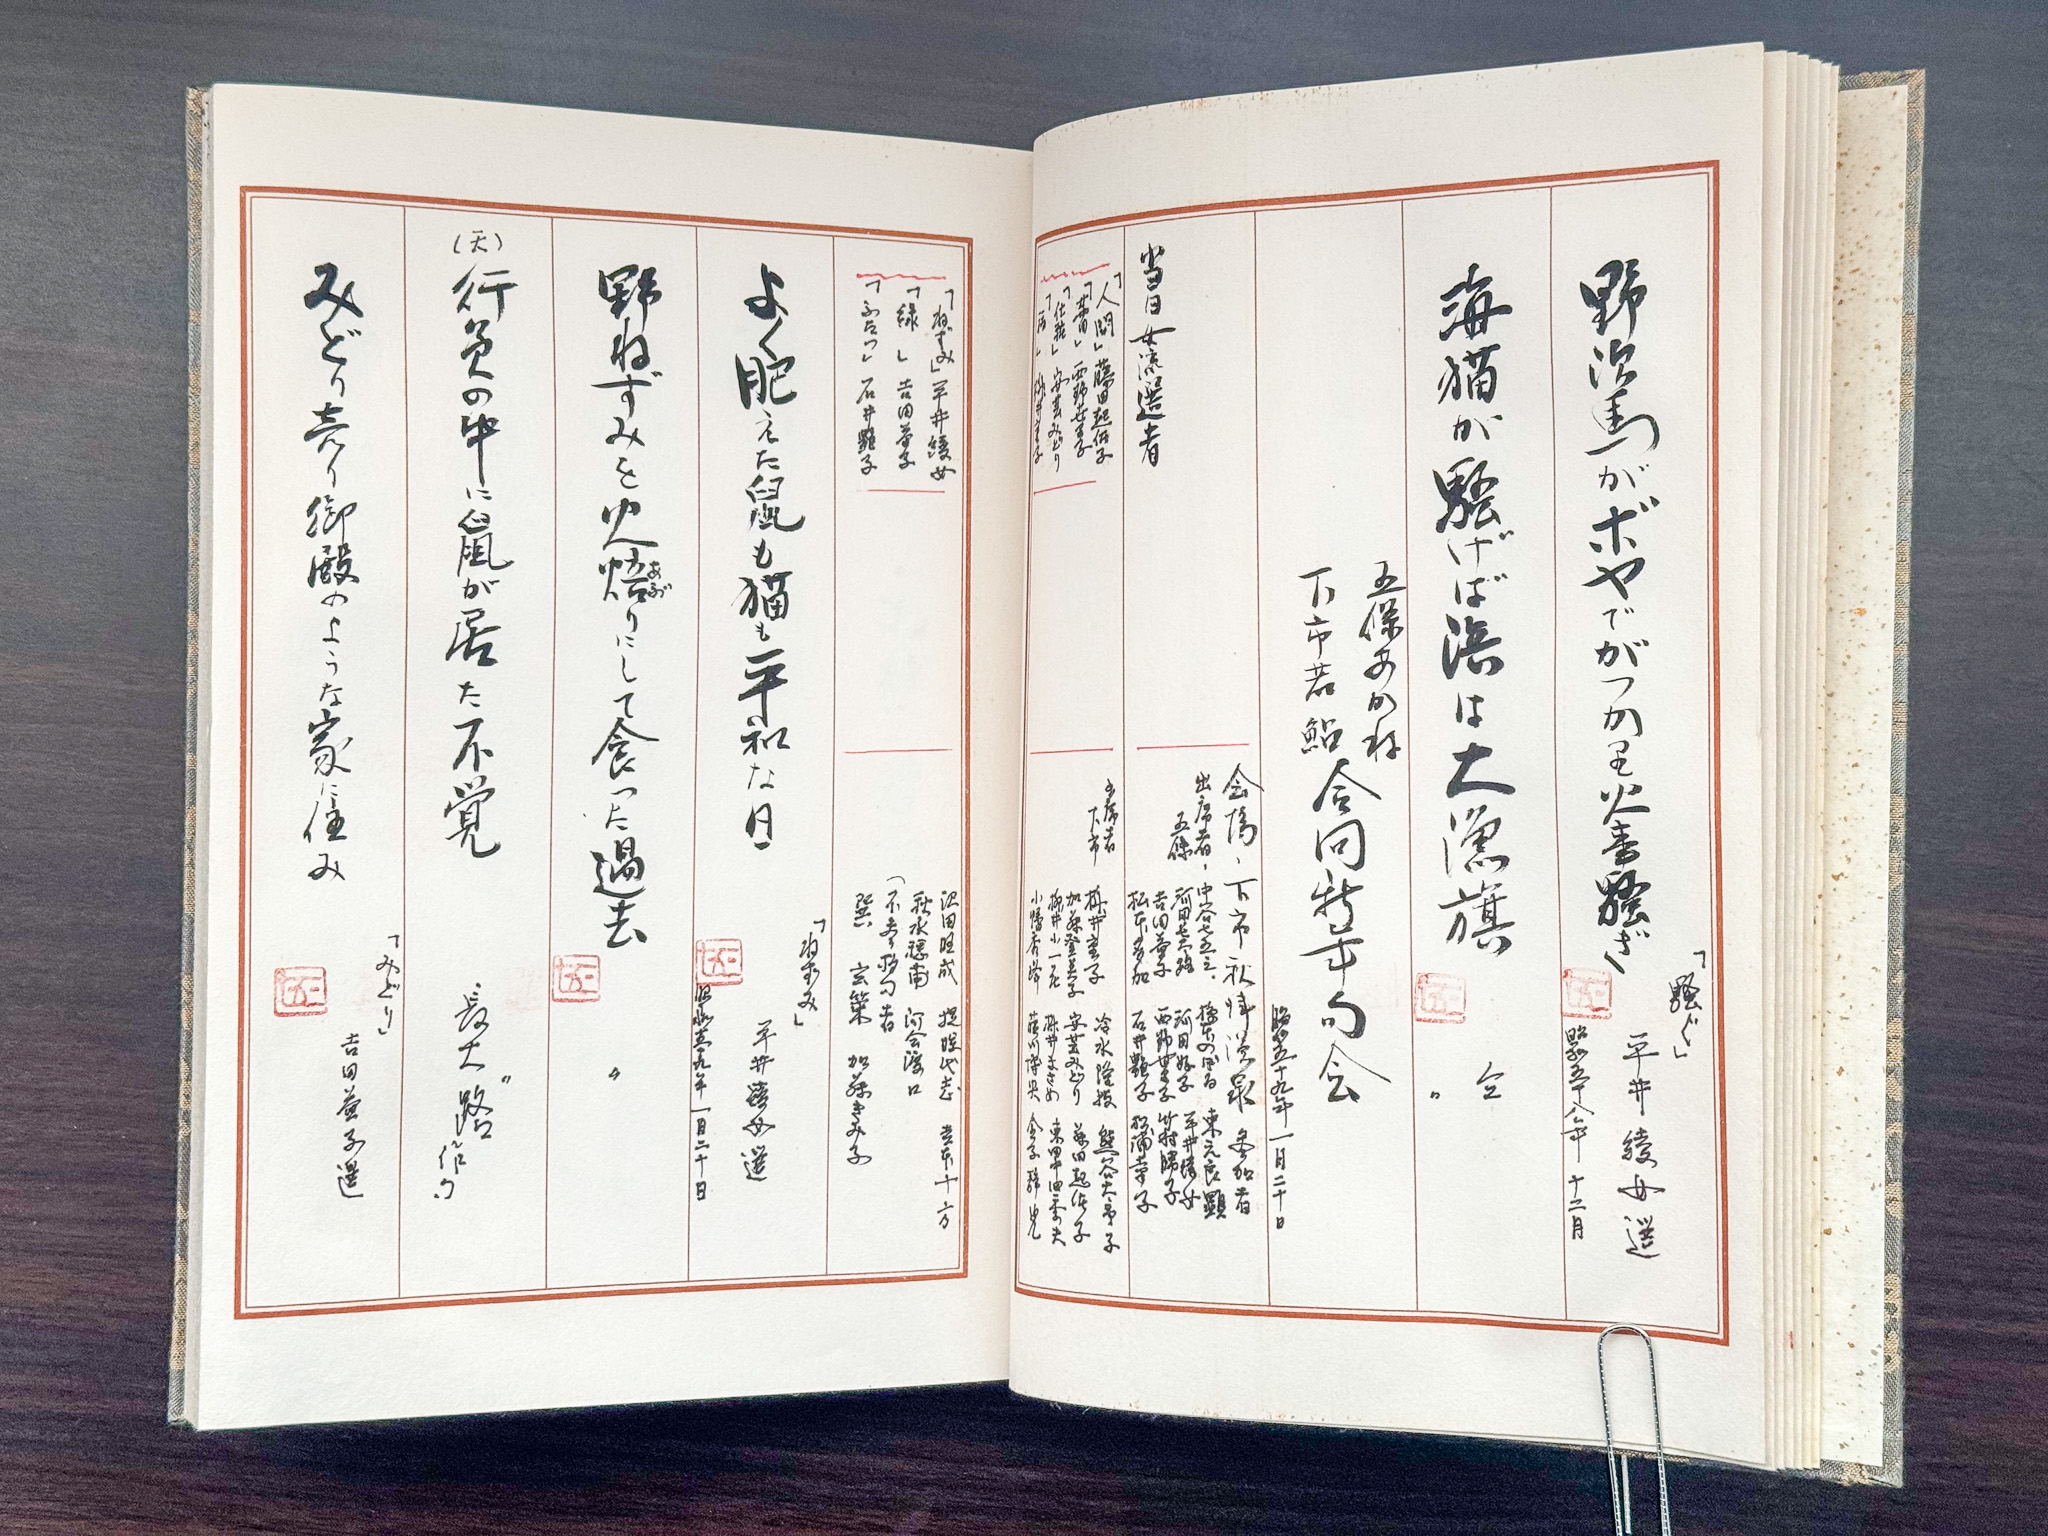 野次馬がボヤでがっかり火事騒ぎ
「騒ぐ」
平井綾女選
昭和五十八年十二月
海猫が騒げば浜は大漁旗
〃
仝
五條あかね
下市若鮎
合同新年句会
昭和五十九年一月二十日
会場、下市秋津温泉 参加者
出席者、
五條
中谷七五三、
東元良顕
河田好子
平井綾女
吉田益子
西野世圭子
竹村勝子
松本多加
石井艶子
松浦幸子
当日女流選者
出席者
下市
柳井圭子
冷水隆枝
加藤登美子
安芸みどり
藤田起佐子
柳井小一花
柳井まさゆ
東田由季夫
小幡香峰
藤川博央
「人間」藤田起佐子
西野世圭子
「仕種」安芸みどり
柳井圭子
沢田旺成
吉本十六
秋水穂甫
河合渓口
(不参投句者
巽 玄策
加藤きみ子
「ねずみ」平井綾女
「緑」吉田益子
「ふたつ」石井艶子
よく肥えた鼠も猫も平和な日
「ねずみ」
平井綾女選
昭和五十九年一月二十日
野ねずみを火焙りにして食った過去
あぶ
〃
(天)
行員の中に鼠が居た不覚
〃
長大路作句
みどり売り御殿のような家に住み
「みどり」
吉田益子選